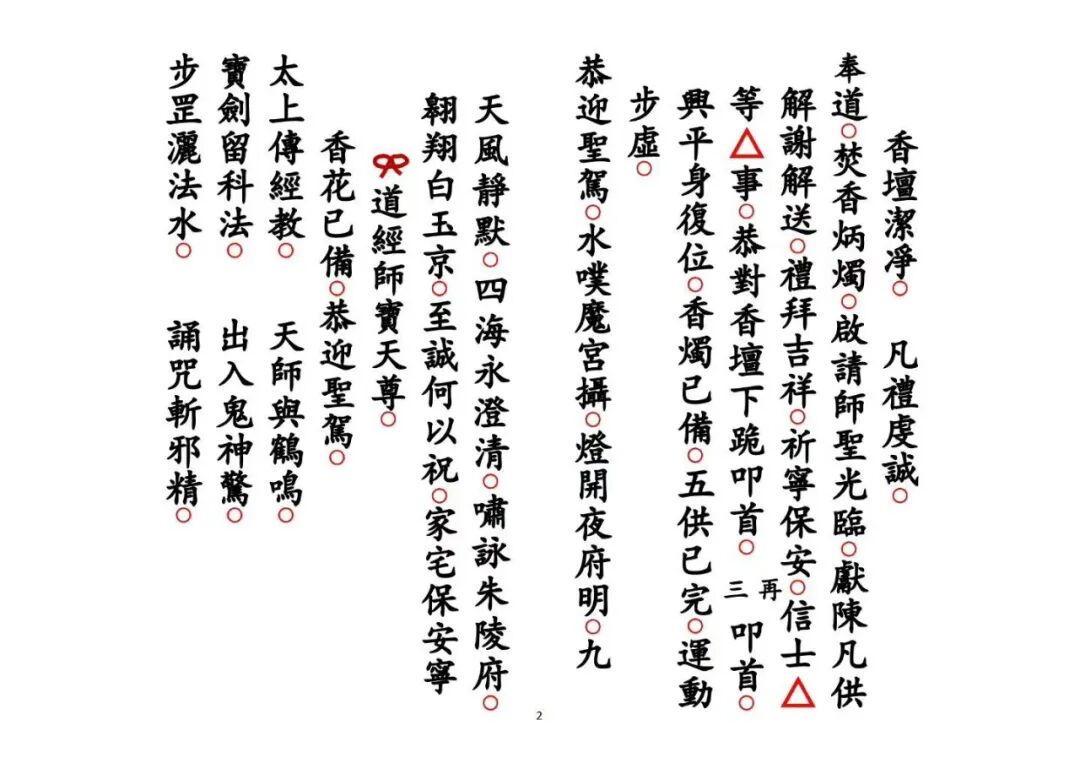 香壇潔淨○ 凡禮虔誠○
奉道○焚香炳燭○啟請師聖光臨○獻陳凡供
解謝解送○禮拜吉祥○祈寧保安○信士△
等△事○恭對香壇下跪叩首○ 再三 叩首○
興平身復位○香燭已備○五供已完○運動
步虛○
恭迎聖駕○水噗魔宮攝○燈開夜府明○九
天風靜默○四海永澄清○嘯詠朱陵府○
翱翔白玉京○至誠何以祝○家宅保安寧
道經師寶天尊○
香花已備○恭迎聖駕○
太上傳經教○ 天師與鶴鳴○
寶劍留科法○ 出入鬼神驚○
步罡灑法水○ 誦咒斬邪精○
2